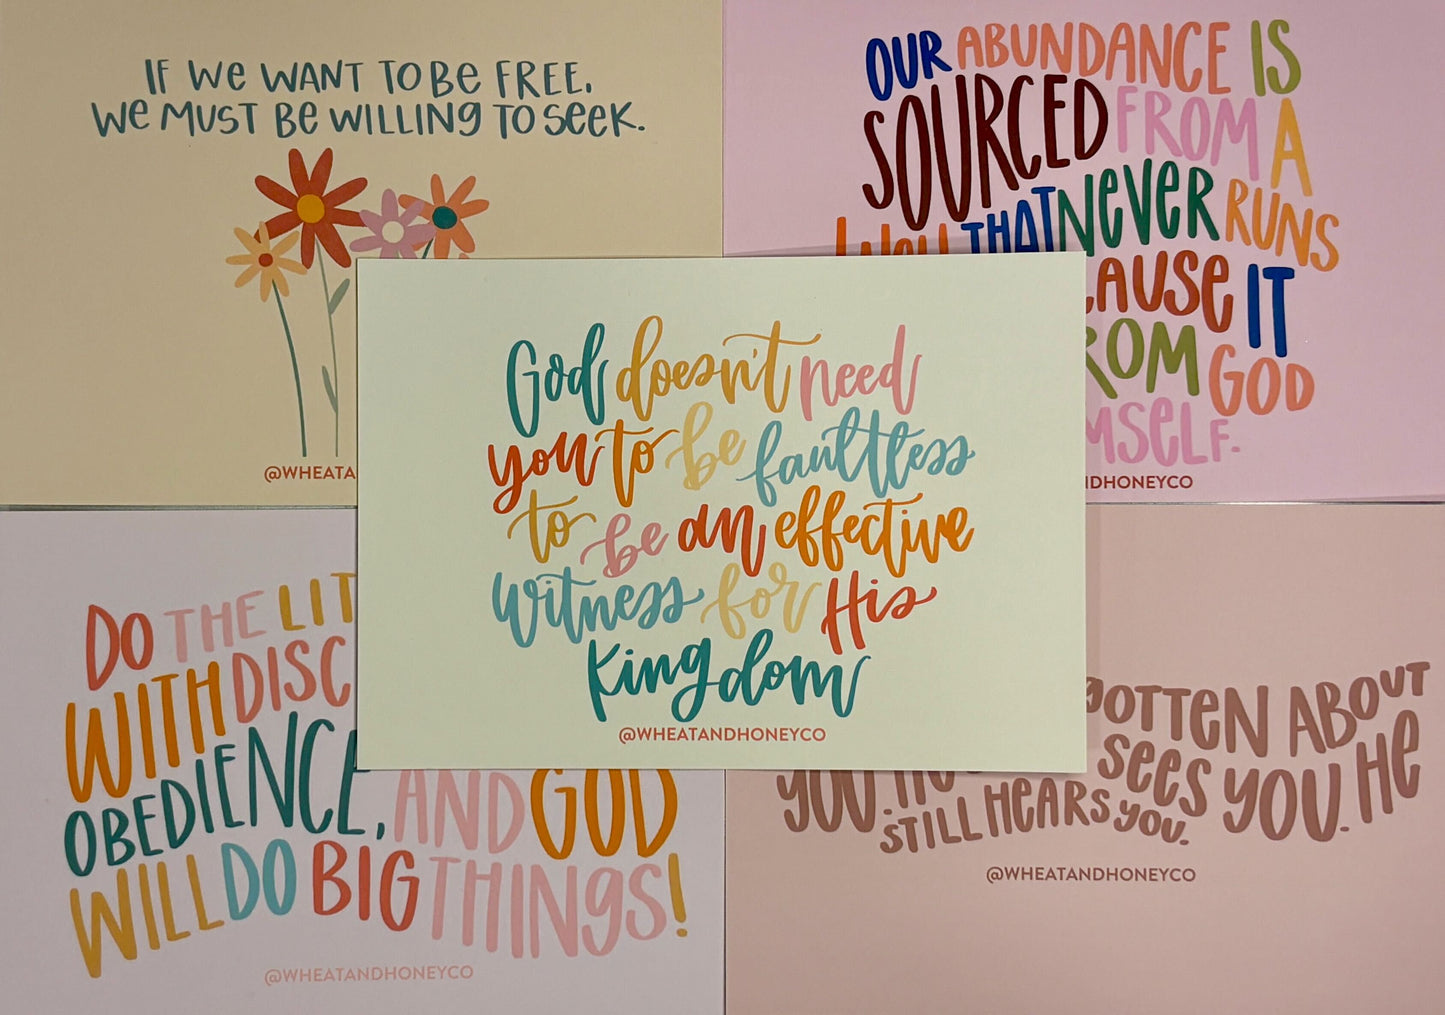 IF WE WANT TO BE FREE,
WE MUST BE WILLING TO SEEK.
@WHEATA
OUR ABUNDANCE IS
SOURCED FROM A
THAT NEVER RUNS
CAUSE IT
ROM GOD
MSELF.
NDHONEYCO
God doesn't need
you to be faultless
to be an effective
witness for His
Kingdom
@WHEATANDHONEYCO
DO THE LIT
WITH DISC
OBEDIENCE, AND GOD
WILL DO BIG THINGS!
@WHEATANDHONEYCO
GOTTEN ABOUT
YOU. SEES YOU. HE
STILL HEARS YOU.
@WHEATANDHONEYCO